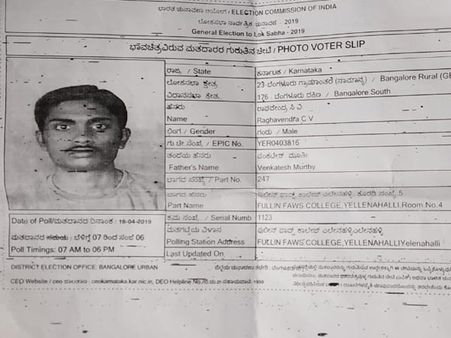 ಭಾರತ ಚುನಾವಣಾ ಆಯೋಗ / ELECTION COMMISSION OF INDIA
ಲೋಕಸಭಾ ಸಾರ್ವತ್ರಿಕ ಚುನಾವಣೆ - 2019
General Election to Lok Sabha - 2019
ಭಾವಚಿತ್ರವಿರುವ ಮತದಾರರ ಗುರುತಿನ ಚೀಟಿ / PHOTO VOTER SLIP
ರಾಜ್ಯ / State ಕರ್ನಾಟಕ / Karnataka
ಲೋಕಸಭಾ ಕ್ಷೇತ್ರ 23 ಬೆಂಗಳೂರು ಗ್ರಾಮಾಂತರ (ಸಾಮಾನ್ಯ) / Bangalore Rural
ವಿಧಾನಸಭಾ ಕ್ಷೇತ್ರ 176 ಬೆಂಗಳೂರು ದಕ್ಷಿಣ / Bangalore South
ಹೆಸರು ರಾಘವೇಂದ್ರ ಸಿ ವಿ
Name Raghavendra C V
ಲಿಂಗ / Gender ಗಂಡು / Male
ಗು.ಚೀ.ಸಂಖ್ಯೆ / EPIC No. YER0493816
ತಂದೆಯ ಹೆಸರು ವೆಂಕಟೇಶ್ ಮೂರ್ತಿ
Father's Name Venkatesh Murthy
ಭಾಗದ ಸಂಖ್ಯೆ / Part No. 247
ಭಾಗದ ಹೆಸರು
Part Name FULLIN FAWS COLLEGE,YELLENAHALLI,Room No.4
ಕ್ರಮ ಸಂಖ್ಯೆ / Serial Numb 1123
ಮತಗಟ್ಟೆಯ ವಿಳಾಸ
Polling Station Address FULLIN FAWS COLLEGE,YELLENAHALLIYelenahalli
Last Updated On
Date of Poll/ಮತದಾನದ ದಿನಾಂಕ : 18-04-2019
ಮತದಾನದ ಸಮಯ : ಬೆಳಿಗ್ಗೆ 07 ರಿಂದ ಸಂಜೆ 06
Poll Timings: 07 AM to 06 PM
DISTRICT ELECTION OFFICE: BANGALORE URBAN
CEO Website / ceokarnataka.kar.nic.in, DEO Helpline No.